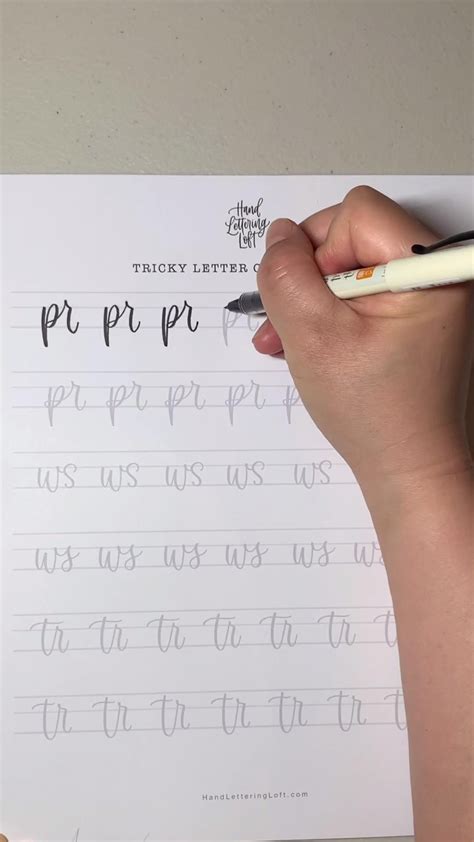 Hand
Lettering
Loft
TRICKY LETTER
pr pr pr pr
pr pr pr pr p
ws ws ws ws ws
ws ws ws ws ws ws
tr tr tr tr tr tr t
tr tr tr tr tr tr t
HandLetteringLoft.com